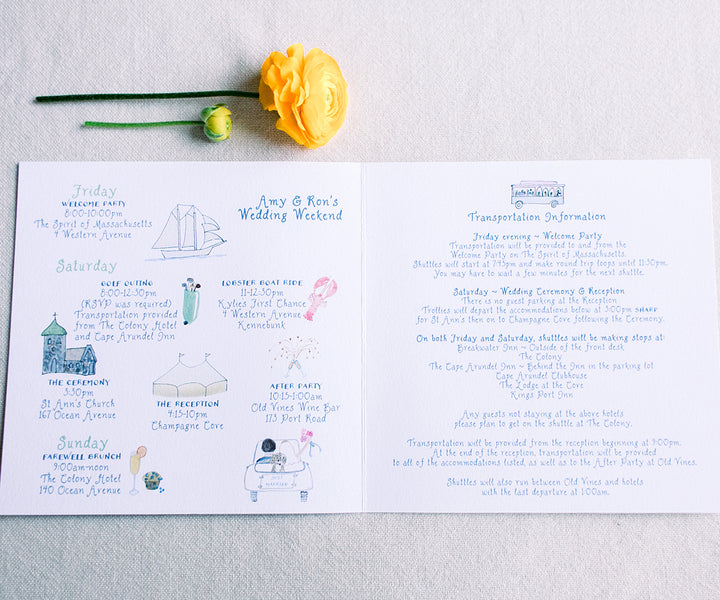 Friday
WELCOME PARTY
8:00-10:00pm
The Spirit of Massachusetts
4 Western Avenue
Amy & Ron's
Wedding Weekend
Saturday
GOLF OUTING
8:00-12:30pm
(RSVP was required)
Transportation provided
from The Colony Hotel
and Cape Arundel Inn
LOBSTER BOAT RIDE
11-12:30pm
Kylies First Chance
4 Western Avenue
Kennebunk
THE CEREMONY
3:30pm
St Ann's Church
167 Ocean Avenue
THE RECEPTION
4:15-10pm
Champagne Cove
AFTER PARTY
10:15-1:00am
Old Vines Wine Bar
173 Port Road
Sunday
FAREWELL BRUNCH
9:00am-noon
The Colony Hotel
140 Ocean Avenue
JUST
MARRIED
Transportation Information
Friday evening ~ Welcome Party
Transportation will be provided to and from the
Welcome Party on The Spirit of Massachusetts.
Shuttles will start at 7:45pm and make round trip loops until 11:30pm.
You may have to wait a few minutes for the next shuttle.
Saturday ~ Wedding Ceremony & Reception
There is no guest parking at the Reception
Trollies will depart the accommodations below at 3:00pm SHARP
for St Ann's then on to Champagne Cove following the Ceremony.
On both Friday and Saturday, shuttles will be making stops at:
Breakwater Inn ~ Outside of the front desk
The Colony
The Cape Arundel Inn ~ Behind the Inn in the parking lot
Cape Arundel Clubhouse
The Lodge at the Cove
Kings Port Inn
Any guests not staying at the above hotels
please plan to get on the shuttle at The Colony.
Transportation will be provided from the reception beginning at 9:00pm.
At the end of the reception, transportation will be provided
to all of the accommodations listed, as well as to the After Party at Old Vines.
Shuttles will also run between Old Vines and hotels
with the last departure at 1:00am.